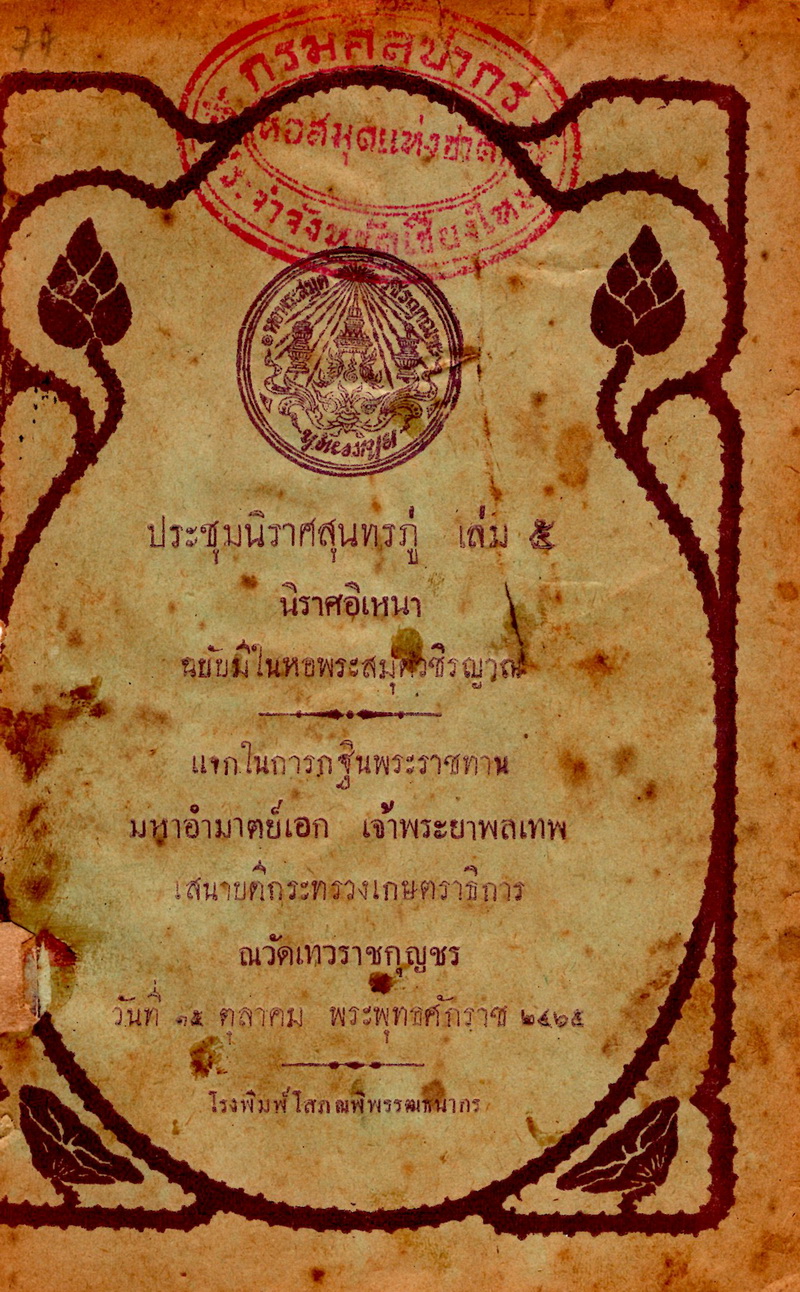 74
กรมศิลปากร
หอสมุดแห่งชาติ
ประจำจังหวัดเชียงใหม่
หอพระสมุดวชิรญาณ
ประชุมนิราศสุนทรภู่ เล่ม ๕
นิราศอิเหนา
ฉบับมีในหอพระสมุดวชิรญาณ
แจกในการกฐินพระราชทาน
มหาอำมาตย์เอก เจ้าพระยาพลเทพ
เสนาบดีกระทรวงเกษตราธิการ
ณวัดเทวราชกุญชร
วันที่ ๑๕ ตุลาคม พระพุทธศักราช ๒๔๖๕
โรงพิมพ์โสภณพิพรรฒธนากร